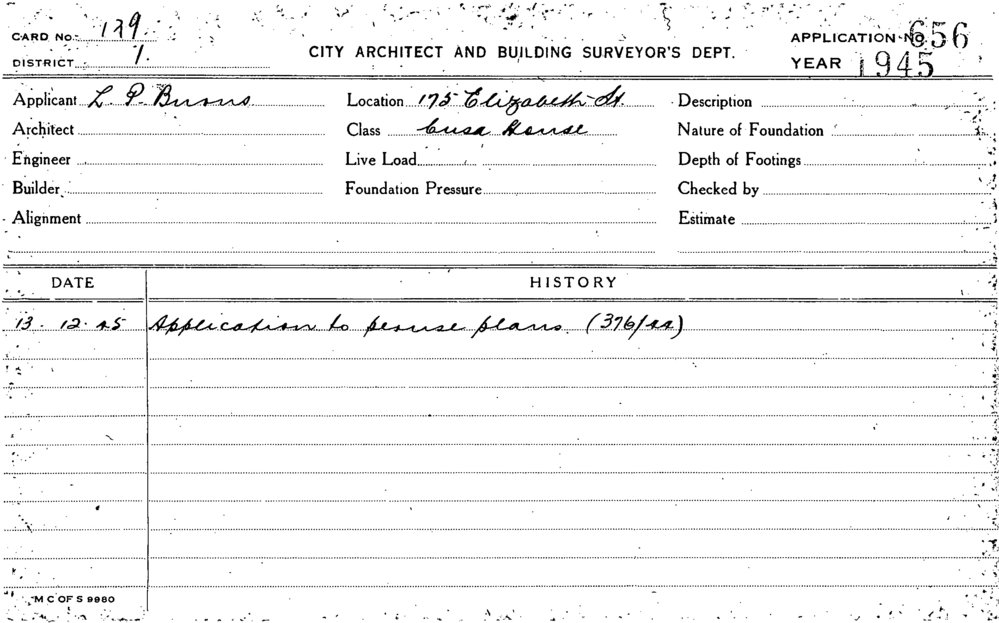 CARD No. 139
DISTRICT 1.
CITY ARCHITECT AND BUILDING SURVEYOR'S DEPT.
APPLICATION No 656
YEAR 1945
Applicant L. P. Burns Location 175 Elizabeth St. Description
Architect Class Cusa House Nature of Foundation
Engineer Live Load Depth of Footings
Builder Foundation Pressure Checked by
Alignment Estimate
DATE HISTORY
13. 12. 45 Application to peruse plans (376/44)
M C OF S 9980